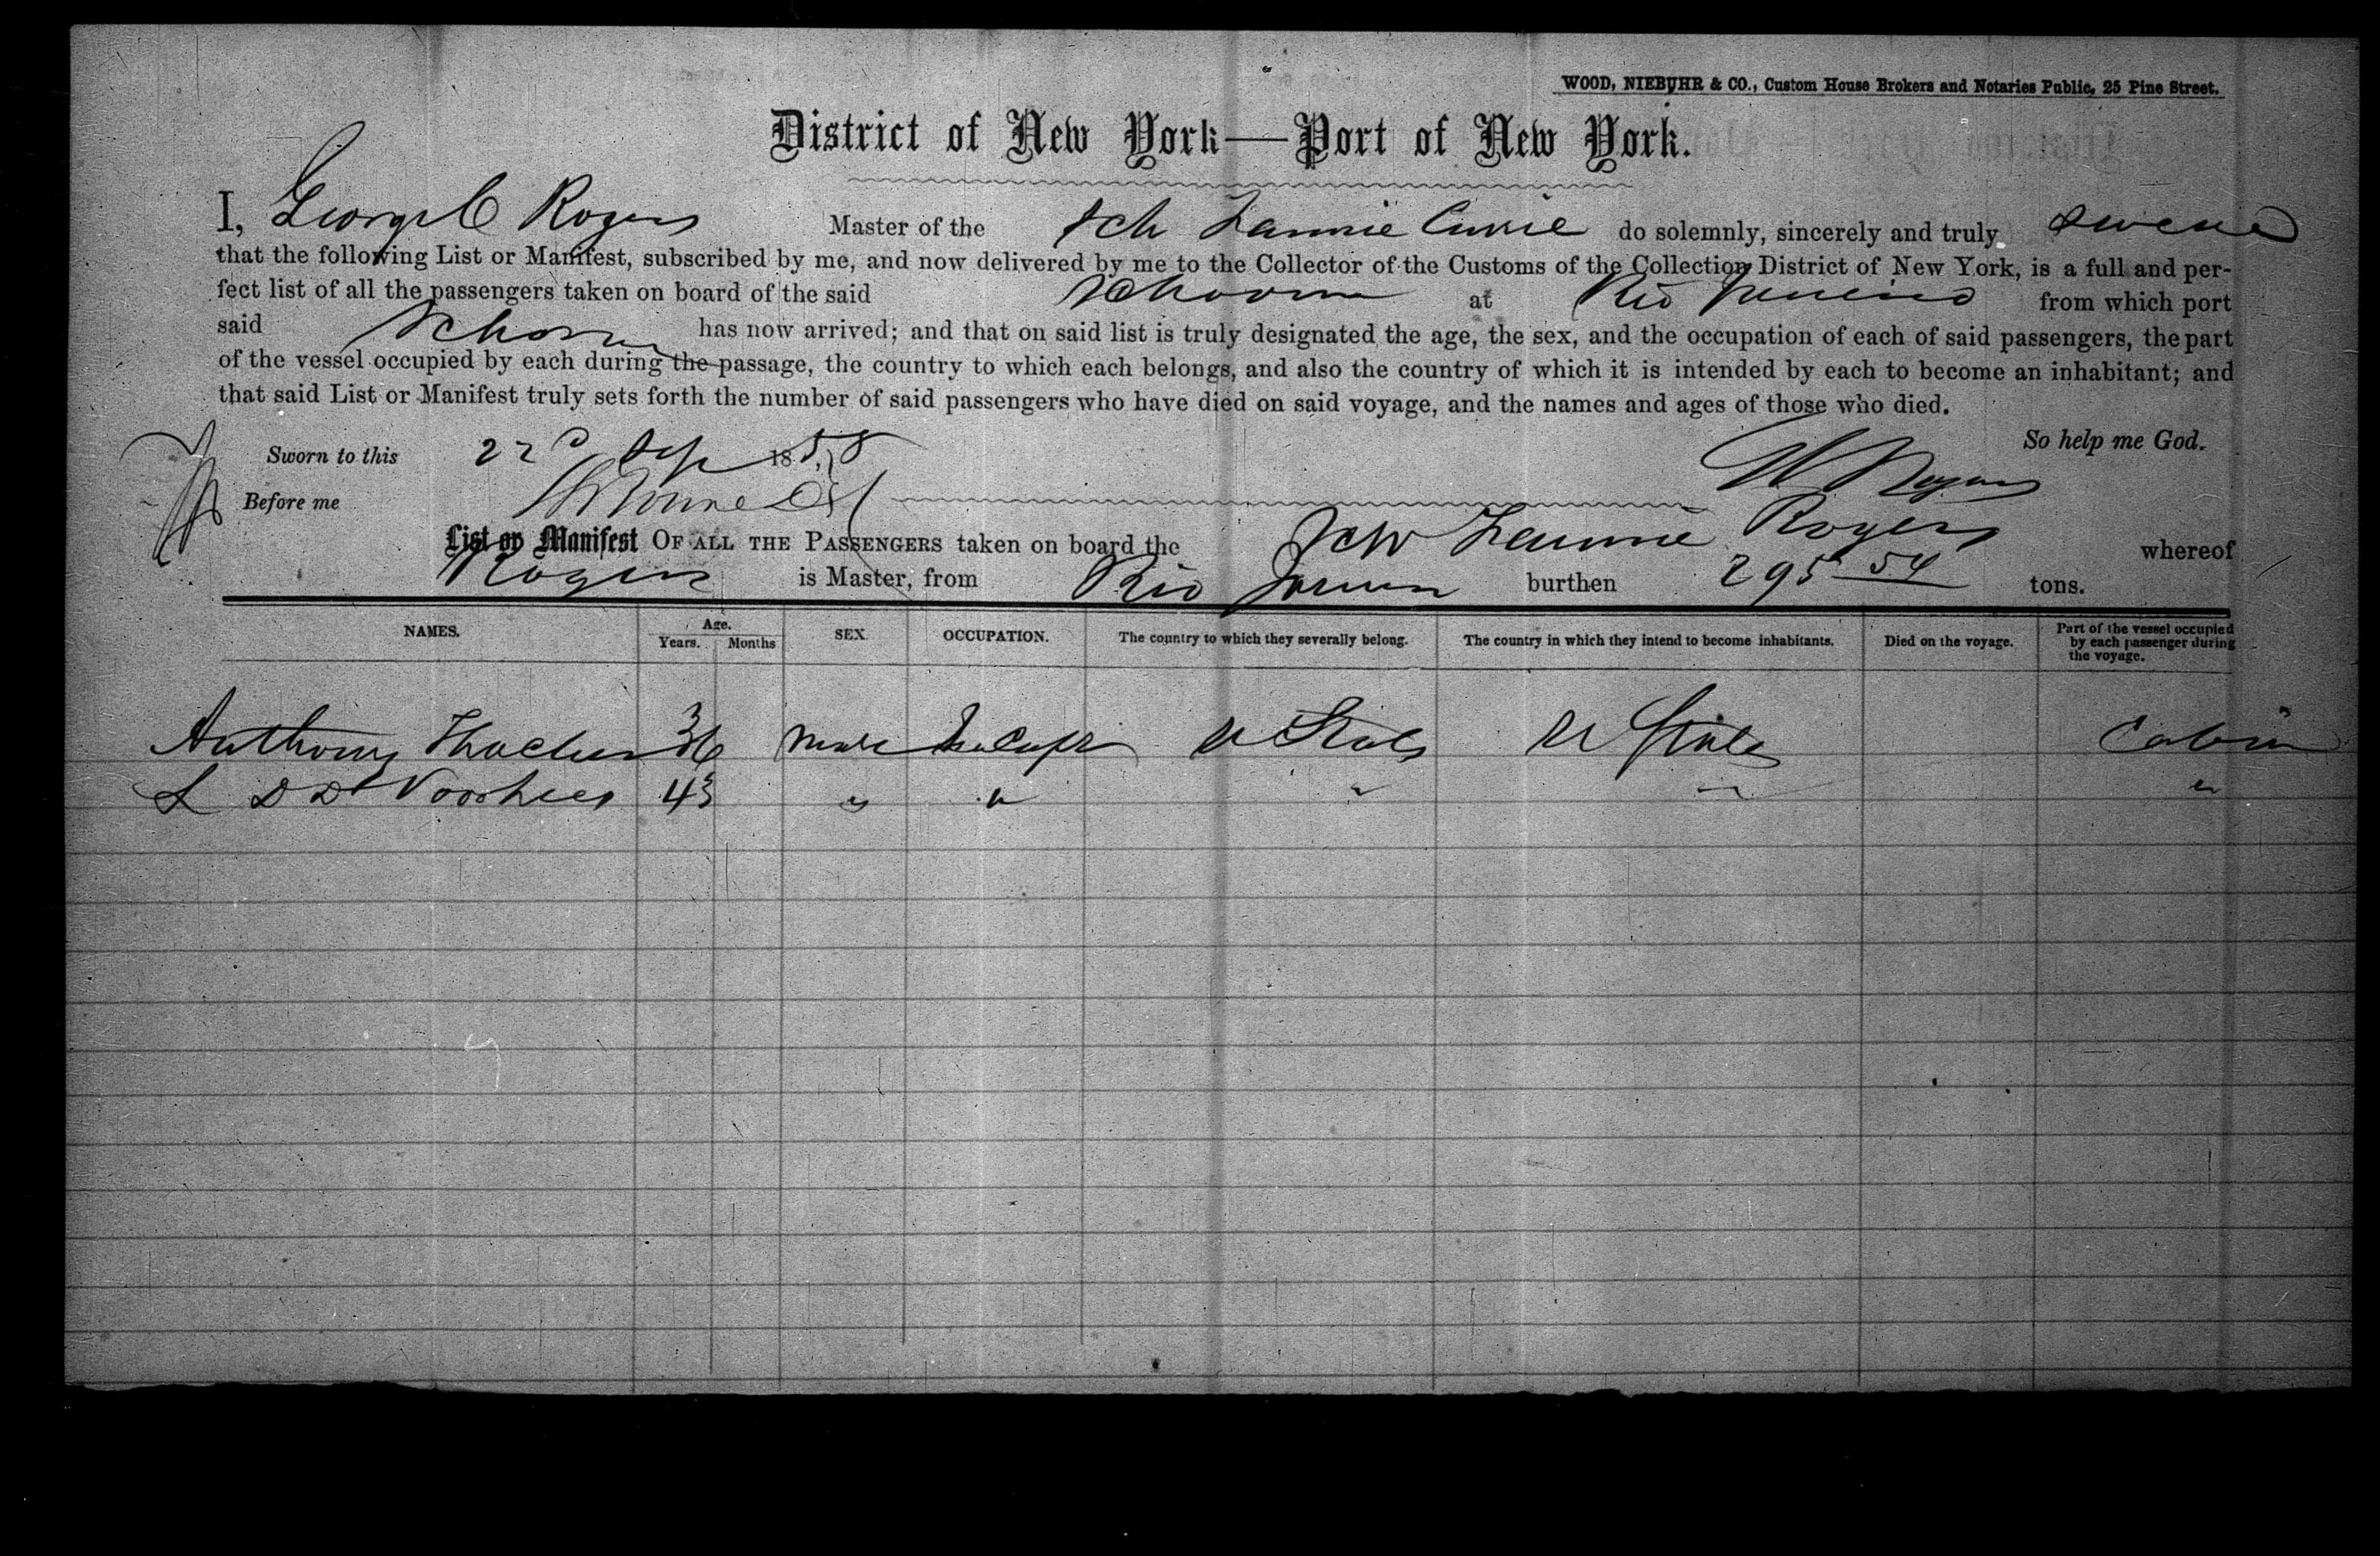 WOOD, NIEBUHR & CO., Custom House Brokers and Notaries Public, 25 Pine Street.
District of New York—Port of New York.
I, George C Rogers Master of the Sch Fannie Currie do solemnly, sincerely and truly swear
that the following List or Manifest, subscribed by me, and now delivered by me to the Collector of the Customs of the Collection District of New York, is a full and per-
fect list of all the passengers taken on board of the said Schooner at Rio Janeiro from which port
said Schooner has now arrived; and that on said list is truly designated the age, the sex, and the occupation of each of said passengers, the part
of the vessel occupied by each during the passage, the country to which each belongs, and also the country of which it is intended by each to become an inhabitant; and
that said List or Manifest truly sets forth the number of said passengers who have died on said voyage, and the names and ages of those who died.
So help me God.
Sworn to this 22d Sep 1858
Before me
List or Manifest OF ALL THE PASSENGERS taken on board the Sch Fannie whereof
Rogers is Master, from Rio burthen 295 54 tons.
NAMES. Age. Years. Months SEX. OCCUPATION. The country to which they severally belong. The country in which they intend to become inhabitants. Died on the voyage. Part of the vessel occupied by each passenger during the voyage.
Anthony Thacher 36 Male U States U States Cabin
L D D Voorhees 43 " " " " "